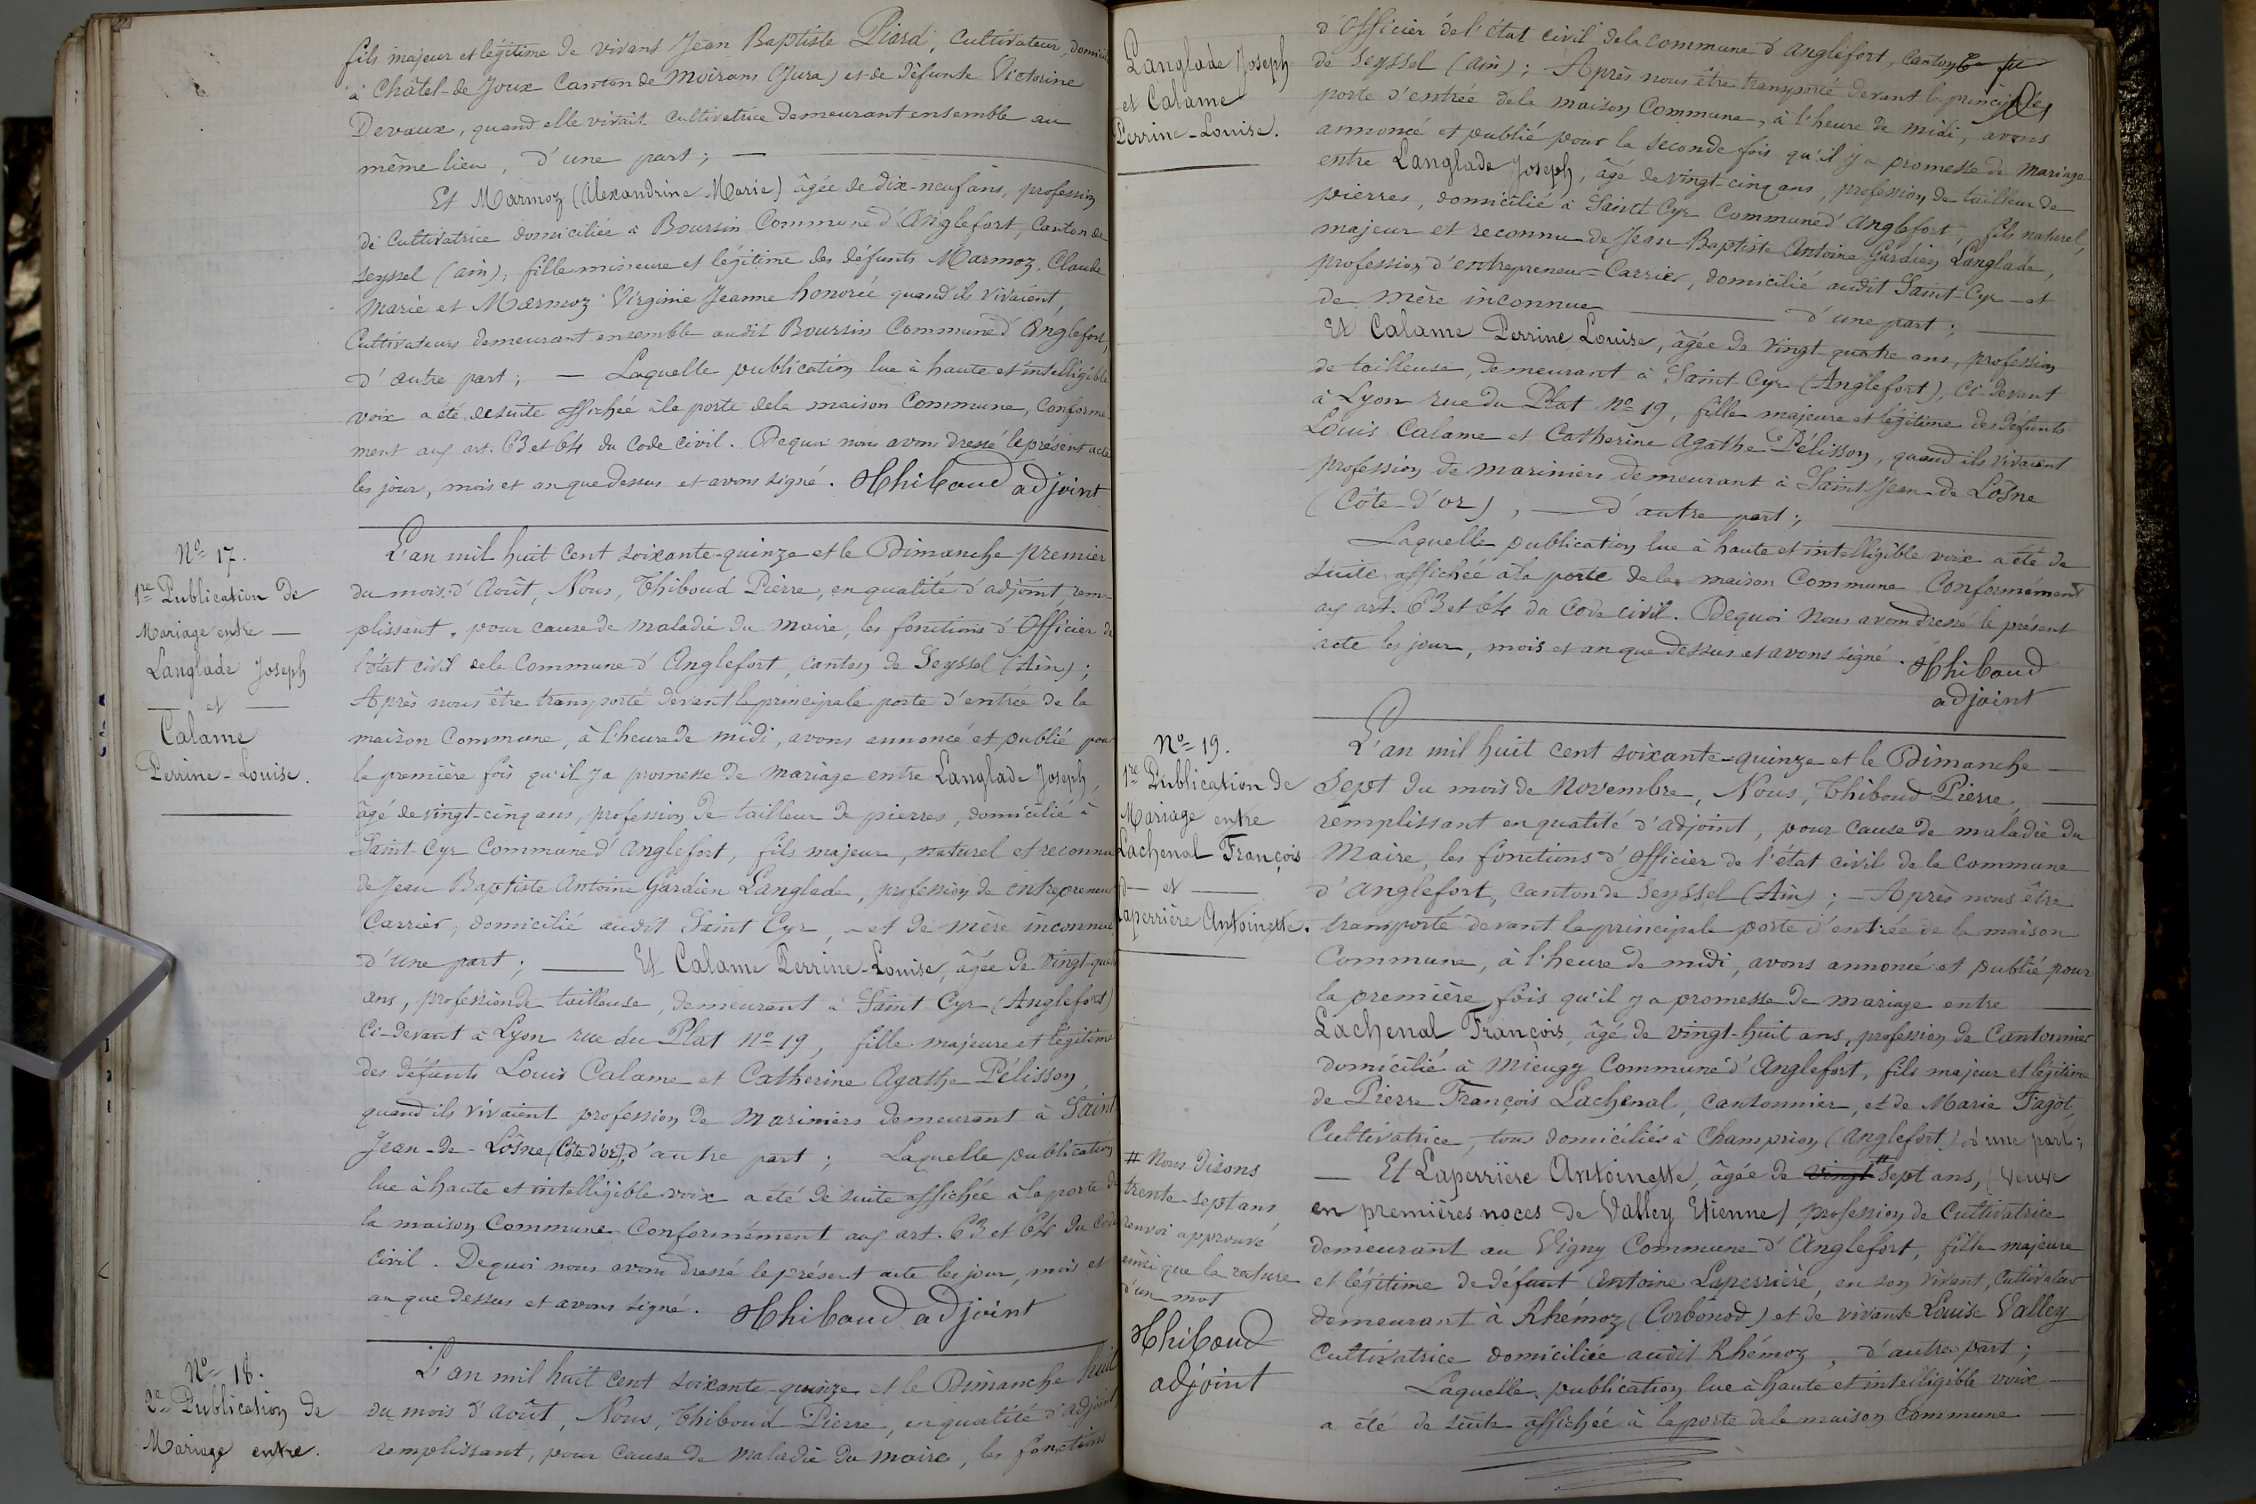 fils majeur et légitime de vivant Jean Baptiste Piard, Cultivateur,
à Châtel-de Joux Canton de Moirans (Jura) et de défunte Victorine
Devaux, quand elle vivait cultivatrice demeurant ensemble au
même lieu, d'une part; —
Et Marmoz (Alexandrine Marie) âgée de dix-neuf ans, profession
de cultivatrice domiciliée à Boursin Commune d'Anglefort, Canton de
Seyssel (ain); fille mineure et légitime des défunts Marmoz, Claude
Marie et Marmoz Virginie Jeanne honorée quand ils vivaient,
Cultivateurs demeurant ensemble audit Boursin Commune d'Anglefort,
d'autre part; — Laquelle publication lue à haute et intelligible
voix a été de suite affichée à la porte de la maison Commune, Conformé-
ment aux art. 63 et 64 du Code civil. De quoi nous avons dressé le présent acte
les jour, mois et an que dessus et avons signé. Thiboud adjoint
No 17.
1re Publication de
Mariage entre —
Langlade Joseph
— et —
Calame
Perrine-Louise.
L'an mil huit cent soixante-quinze et le Dimanche premier
du mois d'Août, Nous, Thiboud Pierre, en qualité d'adjoint, rem-
plissant, pour cause de maladie du maire, les fonctions d'Officier de
l'état civil de la Commune d'Anglefort, canton de Seyssel (Ain);
Après nous être transporté devant la principale porte d'entrée de la
maison Commune, à l'heure de midi, avons annoncé et publié pour
la première fois qu'il y a promesse de mariage entre Langlade Joseph,
âgé de vingt-cinq ans, profession de tailleur de pierres, domicilié à
Saint-Cyr Commune d'Anglefort, fils majeur, naturel et reconnu
de Jean Baptiste Antoine Gardien Langlade, profession de entrepreneur
Carrier, domicilié audit Saint Cyr, — et de mère inconnue
d'une part; — Et Calame Perrine-Louise, âgée de vingt-quatre
ans, profession de tailleuse, demeurant à Saint Cyr (Anglefort)
Ci-devant à Lyon rue du Plat No 19, fille majeure et légitime
des défunts Louis Calame et Catherine Agathe Pélisson
quand ils vivaient profession de mariniers demeurant à Saint
Jean-de-Lôsne (Côte d'or), d'autre part; Laquelle publication
lue à haute et intelligible voix a été de suite affichée à la porte de
la maison Commune Conformément aux art. 63 et 64 du Code
civil. De quoi nous avons dressé le présent acte les jour, mois et
an que dessus et avons signé. Thiboud adjoint
No 18.
2e Publication de
Mariage entre.
L'an mil huit cent soixante-quinze et le Dimanche huit
du mois d'août, Nous, Thiboud Pierre, en qualité d'adjoint
remplissant, pour cause de maladie du maire, les fonctions
Langlade Joseph
et Calame
Perrine-Louise.
d'Officier de l'état civil de la commune d'Anglefort, canton
de Seyssel (Ain); Après nous être transporté devant la principale
porte d'entrée de la maison Commune, à l'heure de midi, avons
annoncé et publié pour la seconde fois qu'il y a promesse de mariage
entre Langlade Joseph, âgé de vingt-cinq ans, profession de tailleur de
pierres, domicilié à Saint Cyr Commune d'Anglefort, fils naturel,
majeur et reconnu de Jean Baptiste Antoine Gardien Langlade,
profession d'entrepreneur=Carrier, domicilié audit Saint-Cyr — et
de mère inconnue — d'une part; —
Et Calame Perrine Louise, âgée de vingt quatre ans, profession
de tailleuse, demeurant à Saint-Cyr (Anglefort), Ci-devant
à Lyon rue du Plat No 19, fille majeure et légitime des défunts
Louis Calame et Catherine Agathe Pélisson, quand ils vivaient
profession de mariniers demeurant à Saint-Jean-de Lôsne
(Côte-d'or), — d'autre part; —
Laquelle publication lue à haute et intelligible voix a été de
suite affichée à la porte de la maison Commune Conformément
aux art. 63 et 64 du Code civil. De quoi nous avons dressé le présent
acte les jour, mois et an que dessus et avons signé. Thiboud
adjoint
No 19.
1re Publication de
Mariage entre
Lachenal François
— et —
Laperrière Antoinette.
L'an mil huit cent soixante-quinze et le Dimanche —
sept du mois de Novembre, Nous, Thiboud Pierre, —
remplissant en qualité d'adjoint, pour cause de maladie du
Maire, les fonctions d'Officier de l'état civil de la commune
d'Anglefort, canton de Seyssel (Ain); — Après nous être
transporté devant la principale porte d'entrée de la maison
Commune, à l'heure de midi, avons annoncé et publié pour
la première fois qu'il y a promesse de mariage entre —
Lachenal François, âgé de vingt-huit ans, profession de Cantonnier
domicilié à Mieugy Commune d'Anglefort, fils majeur et légitime
de Pierre François Lachenal, cantonnier, et de Marie Fagot,
Cultivatrice, tous domiciliés à Champrion (Anglefort) d'une part;
— Et Laperrière Antoinette, âgée de vingt # sept ans, (veuve
en premières noces de Valley Etienne) profession de Cultivatrice
demeurant au Vigny Commune d'Anglefort, fille majeure
et légitime de défunt Antoine Laperrière, en son vivant, cultivateur
demeurant à Rhémoz (Corbonod) et de vivante Louise Valley
Cultivatrice domiciliée audit Rhémoz, d'autre part; —
Laquelle publication lue à haute et intelligible voix —
a été de suite affichée à la porte de la maison Commune —
# Nous disons
trente-sept ans
renvoi approuvé
ainsi que la rature
d'un mot
Thiboud
adjoint